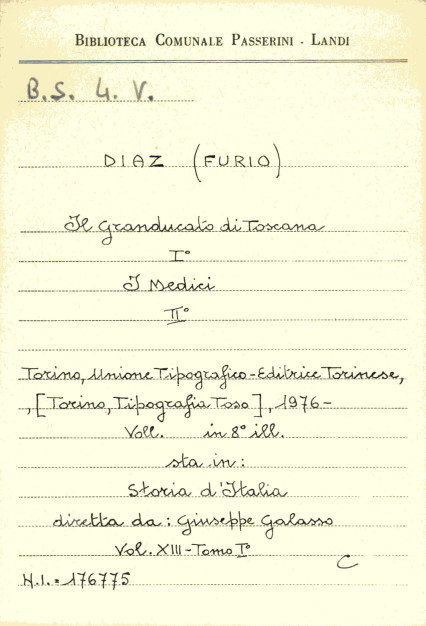 BIBLIOTECA COMUNALE PASSERINI - LANDI
B.S. 4. V.
DIAZ (FURIO)
Il Granducato di Toscana
I°
I Medici
II°
Torino, Unione Tipografico-Editrice Torinese,
, [Torino, Tipografia Toso], 1976-
Voll. in 8° ill.
sta in:
Storia d'Italia
diretta da: Giuseppe Galasso
Vol. XIII-Tomo I°
C
N.I. = 176775